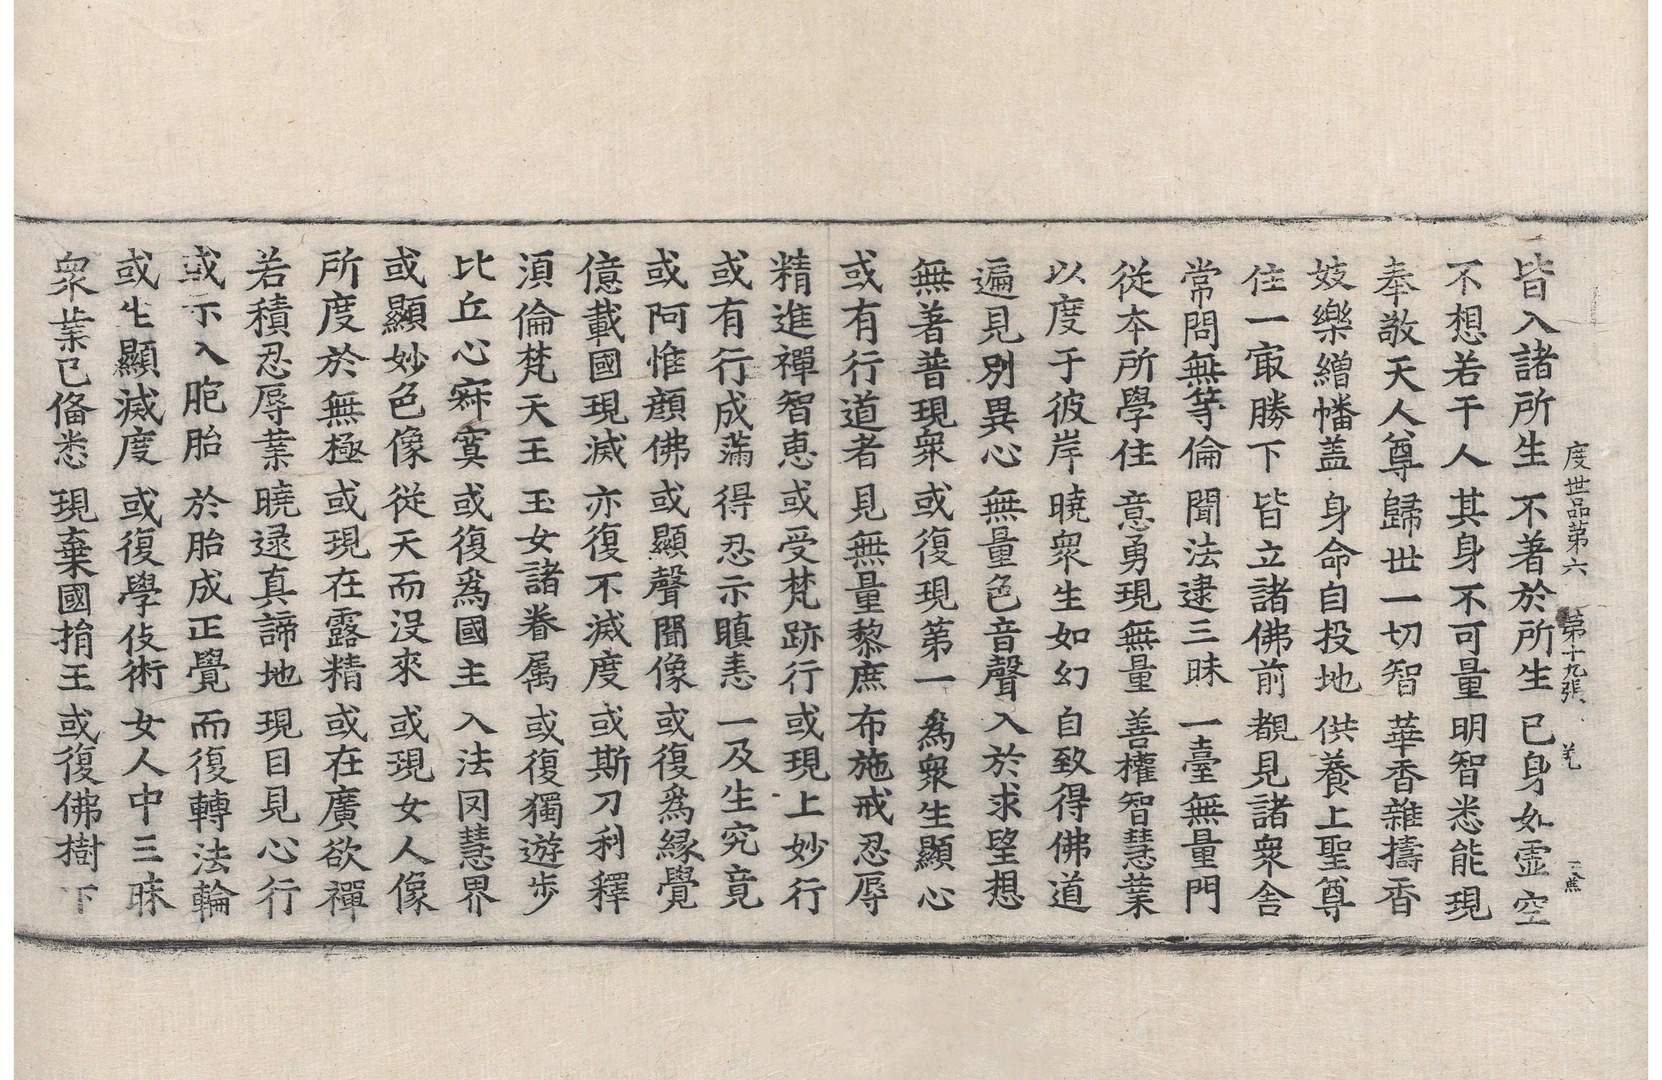 度世品第六 第十九張 羌
皆入諸所生 不著於所生 已身如虛空
不想若干人 其身不可量 明智悉能現
奉敬天人尊 歸世一切智 華香雜擣香
妓樂繒幡盖 身命自投地 供養上聖尊
住一㝡勝下 皆立諸佛前 覩見諸衆舎
常問無等倫 聞法逮三昧 一臺無量門
從本所學住 意勇現無量 善權智慧業
以度于彼岸 曉衆生如幻 自致得佛道
遍見別異心 無量色音聲 入於求望想
無著普現衆 或復現第一 爲衆生顯心
或有行道者 見無量黎庶 布施戒忍辱
精進禪智恵 或受梵跡行 或現上妙行
或有行成滿 得忍示瞋恚 一及生究竟
或阿惟顔佛 或顯聲聞像 或復爲縁覺
億載國現滅 亦復不滅度 或斯刀利釋
湏倫梵天王 玉女諸眷属 或復獨遊步
比丘心寂寞 或復爲國主 入法罔慧界
或顯妙色像 從天而没來 或現女人像
所度於無極 或現在露精 或在廣欲禪
若積忍辱業 曉逯真諦地 現目見心行
或示入胞胎 於胎成正覺 而復轉法輪
或生顯滅度 或復學伎術 女人中三昧
衆業已俻悉 現棄國捐王 或復佛樹下